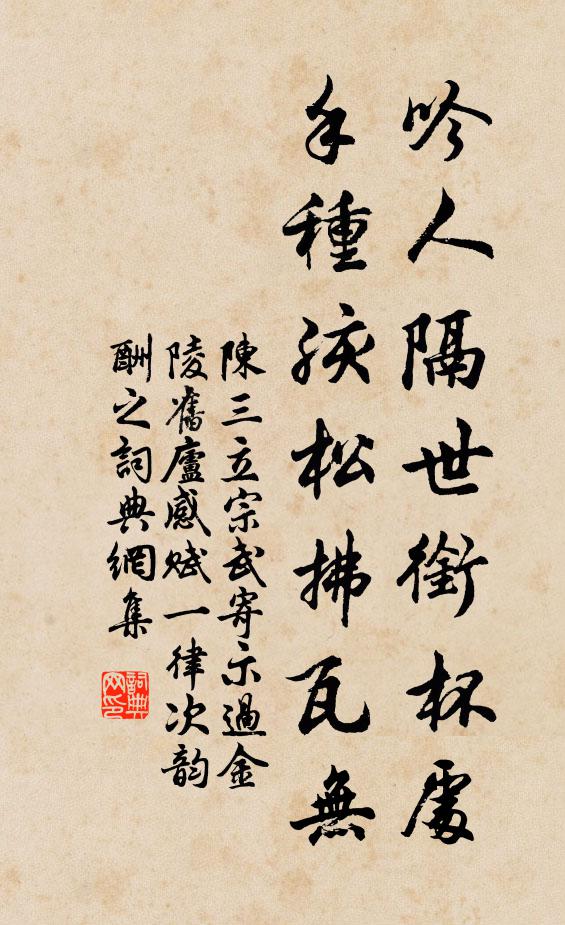 吟人隔世銜杯處
手種孩松拂瓦無
陳三立宗武寄示過金
陵舊廬感賦一律次韵
酬之詞典網集
詞典
网印